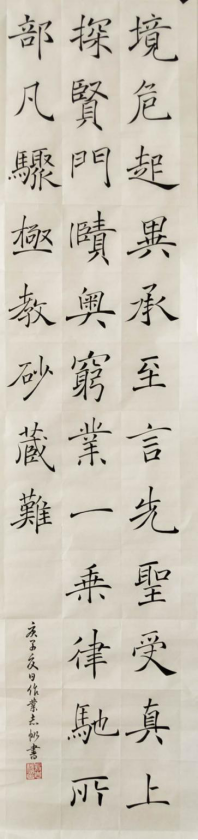 境危起異承至言先聖受真上
探賢門賾奥窮業一乘律馳所
部凡驟極教砂藏難
庚子夏日作業志書